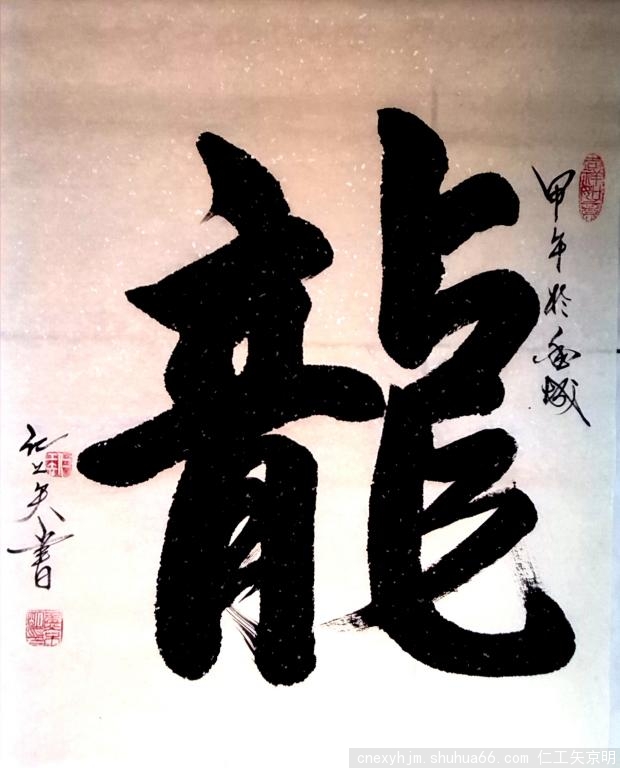 吉祥如意
甲午於城
龍
仁工矢書
cnexyhjm.shuhua66.com 仁工矢京明